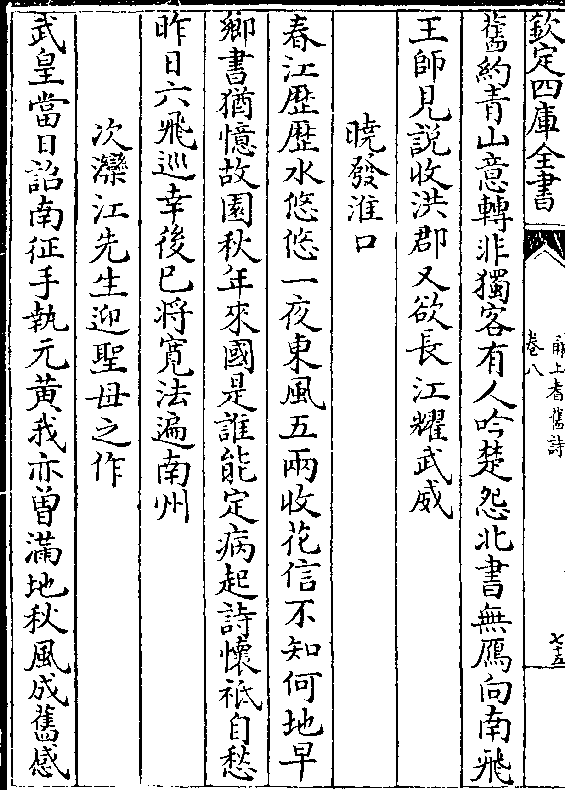 欽定四庫全書
甬上耆舊詩
卷八
七十五
舊約青山意轉非獨客有人吟楚怨北書無鴈向南飛
王師見說收洪郡又欲長江耀武威
曉發淮口
春江歴歴水悠悠一夜東風五兩收花信不知何地早
鄉書猶憶故園秋年來國是誰能定病起詩懷祇自愁
昨日六飛巡幸後已將寛法遍南州
次灤江先生迎聖母之作
武皇當日詔南征手執元黄我亦曽滿地秋風成舊感